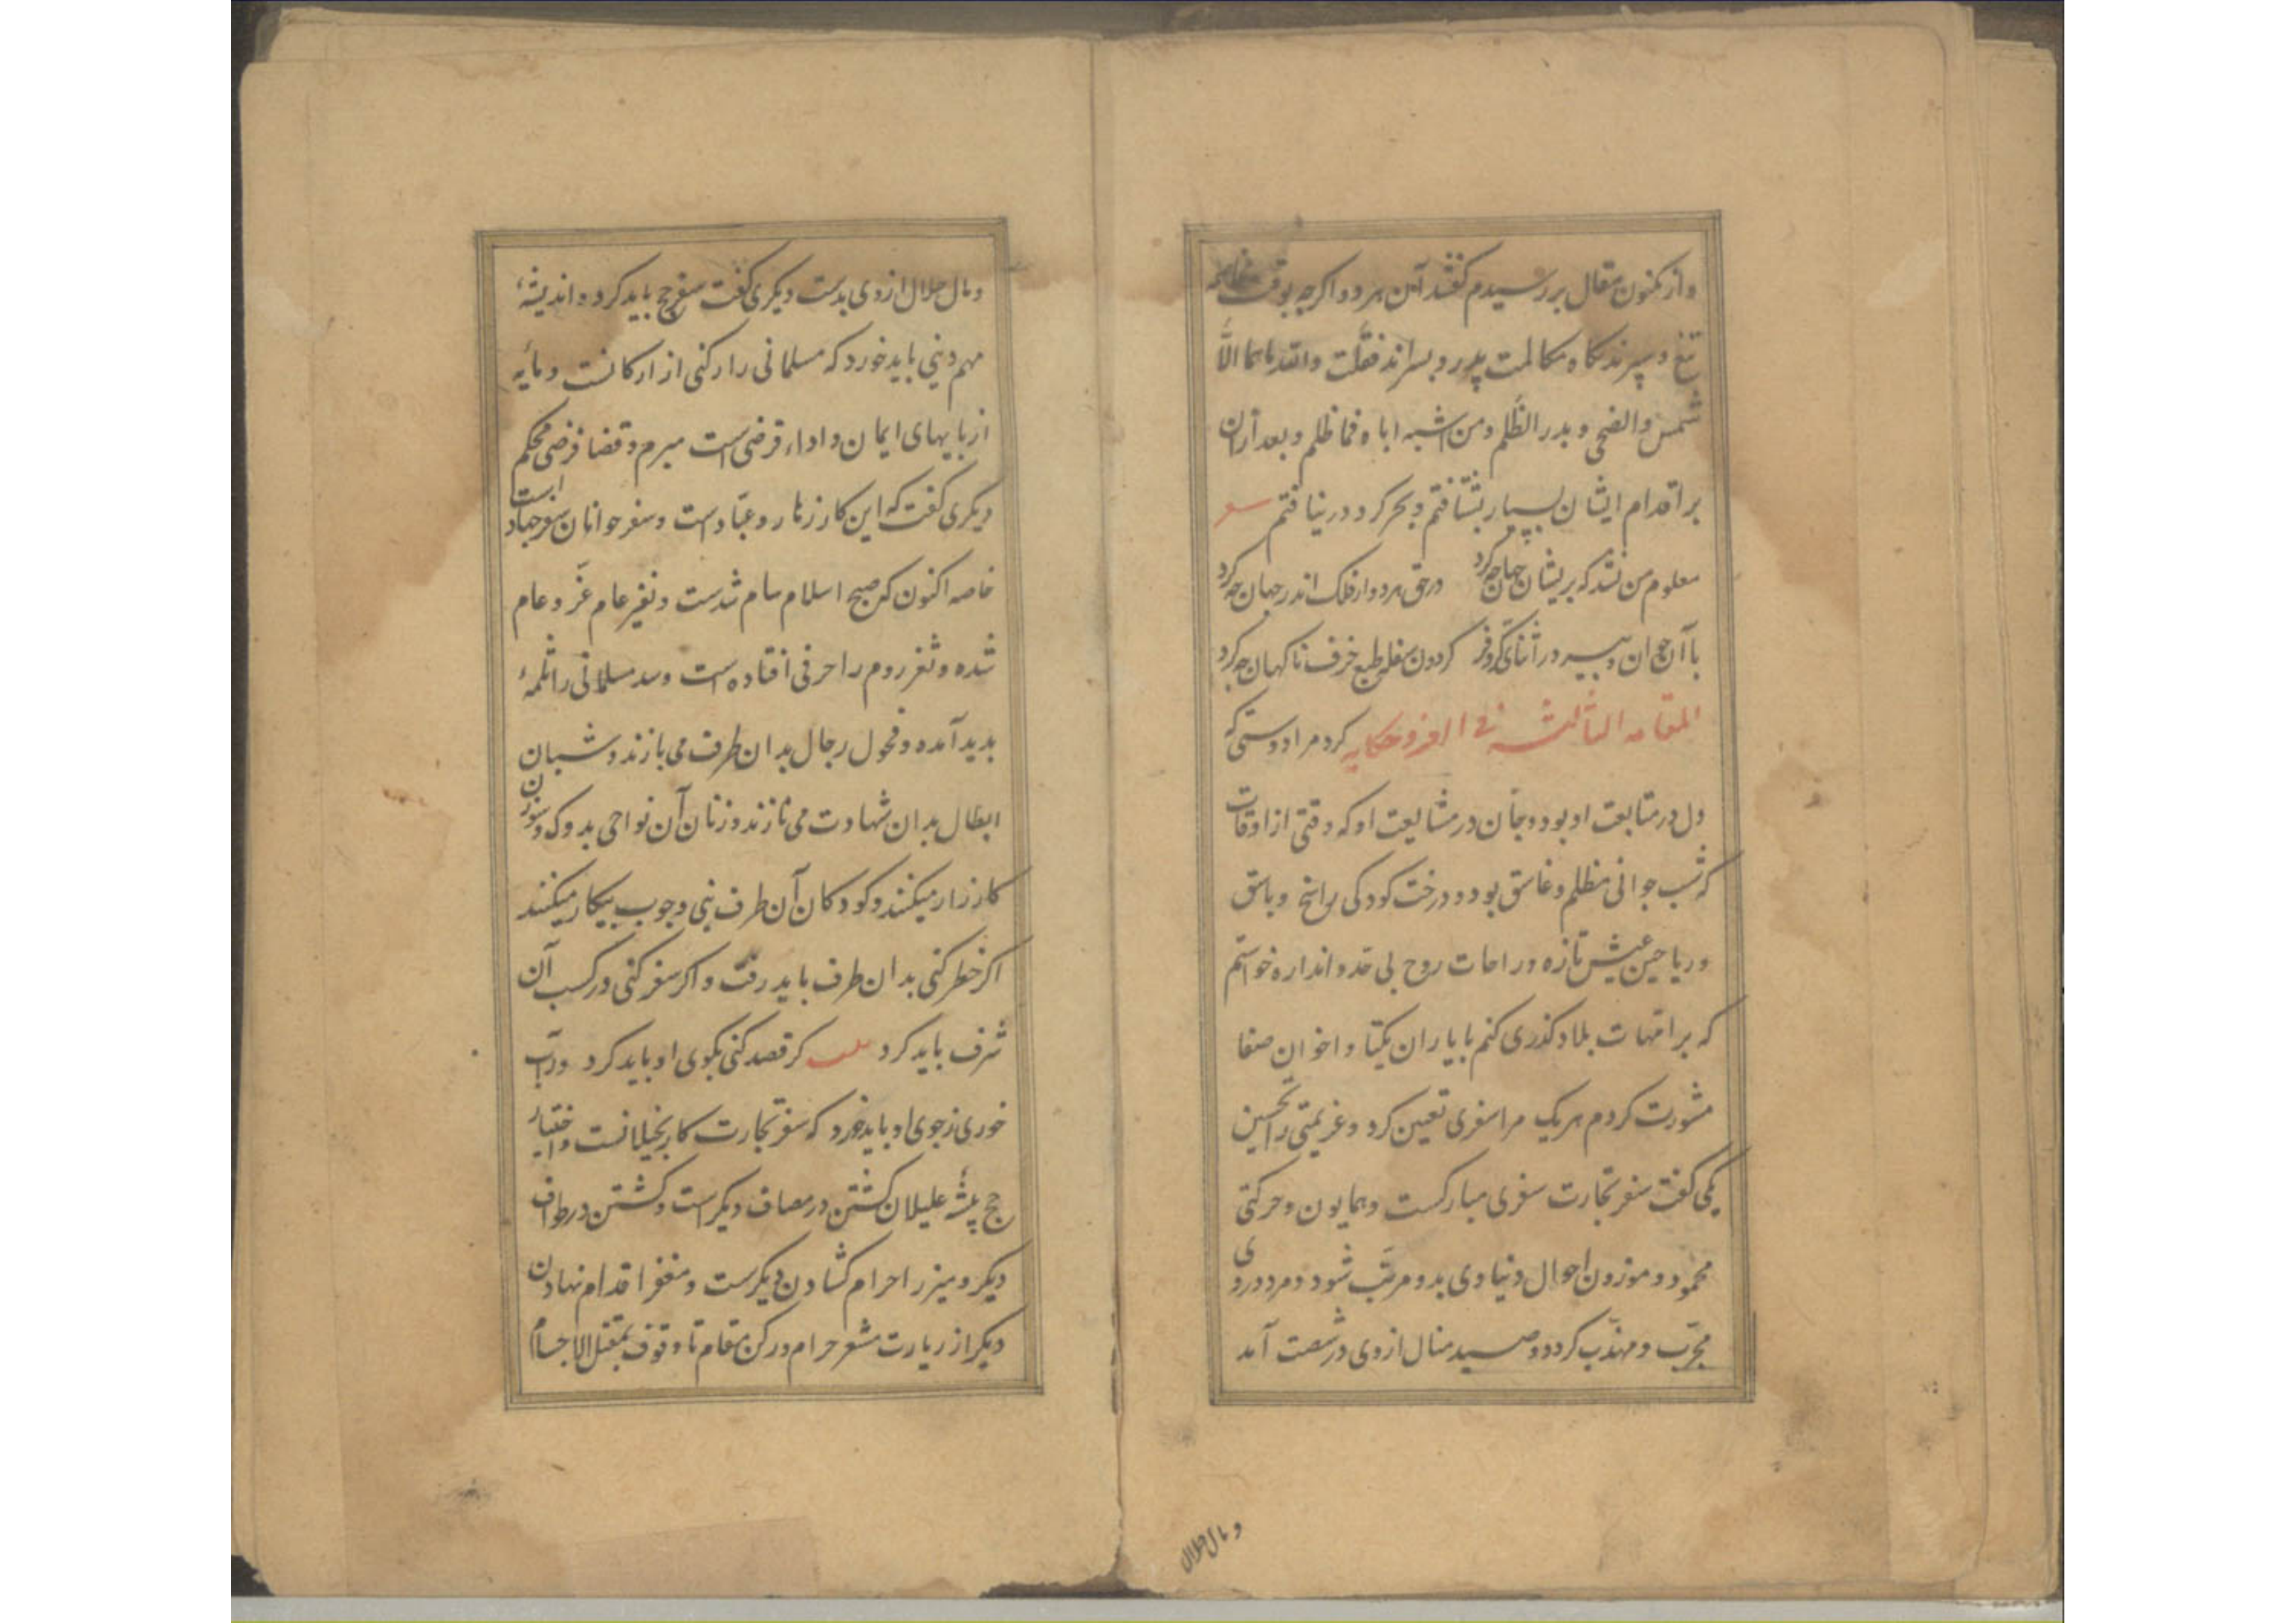 واز مکنون مقال بررسیدم گفتند آن هر دو اگرچه بوقت مخاصمه
تیغ و سپرند گاه مکالمت پدر و پسرند فقلت والله ماهما الا
شمس والضحی و بدر الظلم ومن اشبه اباه فما ظلم و بعد ازان
بر اقدام ایشان بسیار بشتافتم و بجز گرد در نیافتم شعر
معلوم من نشد که بریشان جهان چه کرد در حق هر دو از فلک اندر جهان چه کرد
با آن جوان و پیر در اثنای کروفر گردون سفله طبع خرف ناگهان چه کرد
المقامه الثالثه فی الغزو حکایه کرد مرا دوستی که
دل در متابعت او بود و جان در مشایعت او که وقتی از اوقات
که شب جوانی مظلم و غاسق بود و درخت کودکی راسخ و باسق
و ریاحین عیش تازه و راحات روح بی حد و اندازه خواستم
که بر امهات بلاد گذری کنم با یاران یکتا و اخوان صفا
مشورت کردم هر یک مرا سفری تعیین کرد و عزیمتی را تحسین
یکی گفت سفر تجارت سفری مبارکست و همایون و حرکتی
محمود و موزون احوال دنیاوی بدو مرتب شود و مرد دروی
مجرب و مهذب گردد و صید منال ازوی در شصت آمد
و مال حلال
و مال حلال ازوی بدست دیگری گفت سفر حج باید کرد و اندیشهٔ
مهم دینی باید خورد که مسلمانی را رکنی از ارکانست و مایه
از بابهای ایمان و اداء قرضی است مبرم و قضا فرضی محکم
دیگری گفت که این کار زهار و عباد است و سفر جوانان سفر جهاد است
خاصه اکنون که صبح اسلام سام شدست و نفیر عام غز و عام
شده و ثغر روم را حرفی افتاده است و سد مسلمانی را ثلمهٔ
بدید آمده و فحول رجال بدان طرف می یازند و شبان
ابطال بدان شهادت می نازند و زنان آن نواحی بدوک و سوزن
کارزار میکنند و کودکان آن طرف بنی و چوب پیکار میکنند
اگر خطر کنی بدان طرف باید رفت و اگر سفر کنی در کسب آن
شرف باید کرد بیت گر قصد کنی بکوی او باید کرد ور آب
خوری ز جوی او باید خورد که سفر تجارت کار بخیلانست و اختیار
حج پیشهٔ علیلان کشتن در مصاف دیگر است و گشتن در طواف
دیگر و میزر احرام گشادن دیگرست و مغفر اقدام نهادن
دیگر از زیارت مشعر حرام و رکن مقام تا وقوف بمقتل الاجسام